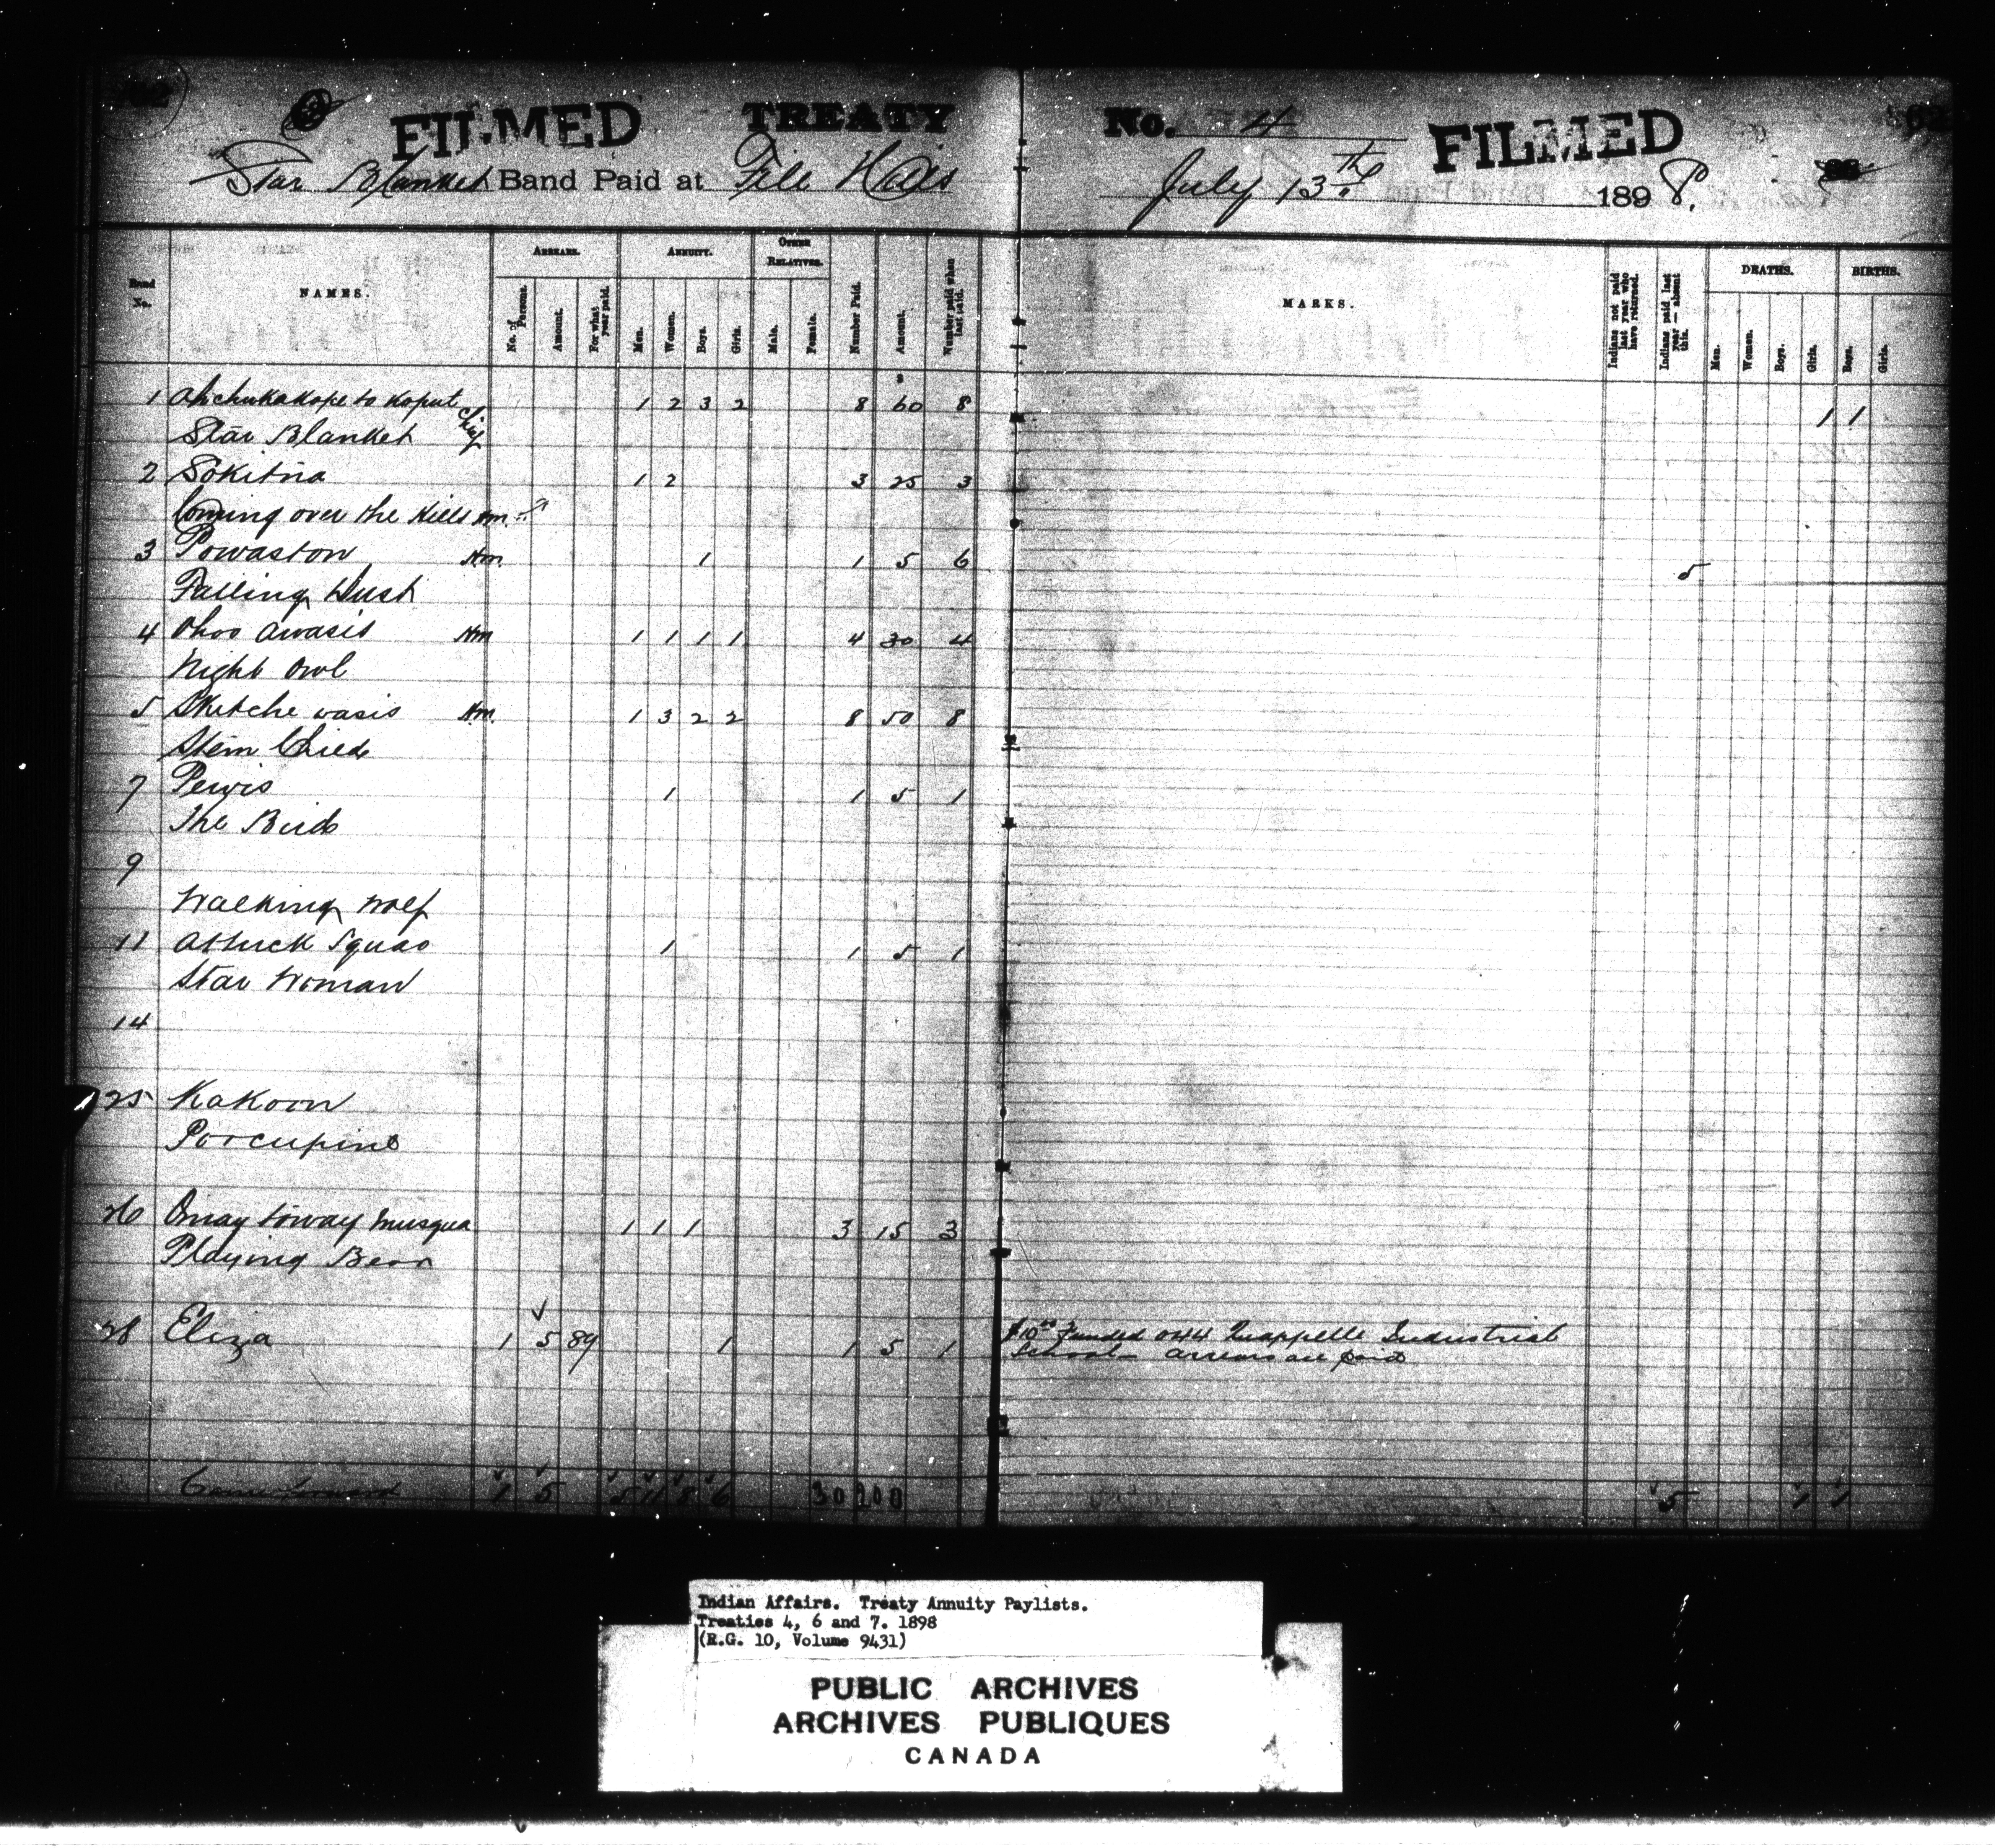 62
FILMED TREATY No. 4 FILMED
Star Blanket Band Paid at File Hills July 13th 1898.
Band No. NAMES. ARREARS. ANNUITY. OTHER RELATIVES. MARKS. DEATHS. BIRTHS.
No. of Persons. Amount. For what year paid. Men. Women. Boys. Girls. Male. Female. Number Paid. Amount. Number paid when last paid. Indians not paid last year who have returned. Indians paid last year — absent this. Men. Women. Boys. Girls. Boys. Girls.
1 Ahchukakope to Koput Chief 1 2 3 2 8 60 8 1 1
Star Blanket
2 Sokitna 1 2 3 25 3
Coming over the Hills Hm.
3 Powaston Hm. 1 1 5 6 5
Falling Dust
4 Ohoo Awasis Hm 1 1 1 1 4 30 4
Night Owl
5 Sketche wasis Hm. 1 3 2 2 8 50 8
Stem Child
7 Pewis 1 1 5 1
The Bird
9
Walking Wolf
11 Attuck Squao 1 1 5 1
Star Woman
14
25 Kakoon
Porcupine
26 Omay toway musqua 1 1 1 3 15 3
Playing Bear
28 Eliza 1 5 89 1 1 5 1 $10.00 Funded 044 Quappelle Industrial
School Arrears are paid
1 5 5 11 8 6 30 200 5 1 1
Indian Affairs. Treaty Annuity Paylists.
Treaties 4, 6 and 7. 1898
(R.G. 10, Volume 9431)
PUBLIC ARCHIVES
ARCHIVES PUBLIQUES
CANADA